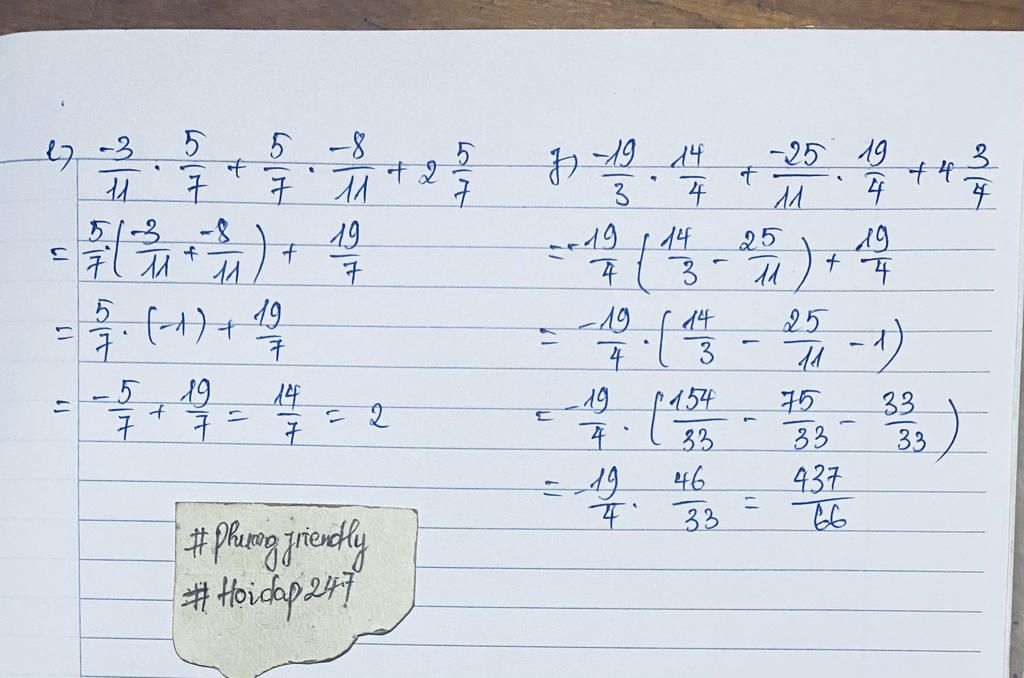 e) -3/11 . 5/7 + 5/7 . -8/11 + 2 5/7
= 5/7 . ( -3/11 + -8/11 ) + 19/7
= 5/7 . (-1) + 19/7
= -5/7 + 19/7 = 14/7 = 2
f) -19/3 . 14/4 + -25/11 . 19/4 + 4 3/4
= -19/4 ( 14/3 - 25/11 ) + 19/4
= -19/4 . ( 14/3 - 25/11 - 1 )
= -19/4 . ( 154/33 - 75/33 - 33/33 )
= -19/4 . 46/33 = 437/66
#Phuongfriendly
#Hoidap247